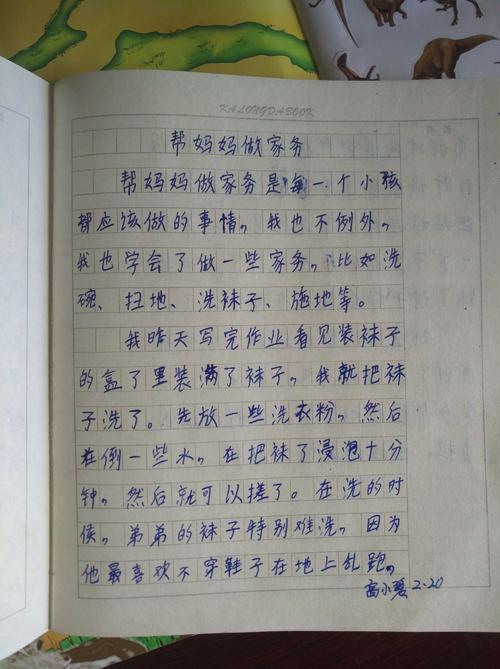 KALONGDABOOK
帮妈妈做家务
帮妈妈做家务是每一个小孩
都应该做的事情。我也不例外。
我也学会了做一些家务。比如洗
碗、扫地、洗袜子、拖地等。
我昨天写完作业看见装袜子
的盒了里装满了袜子。我就把袜
子洗了。先放一些洗衣粉，然后
在倒一些水。在把袜了浸泡十分
钟。然后就可以搓了。在洗的时
侯，弟弟的袜子特别难洗。因为
他最喜欢不穿鞋子在地上乱跑。
2.20